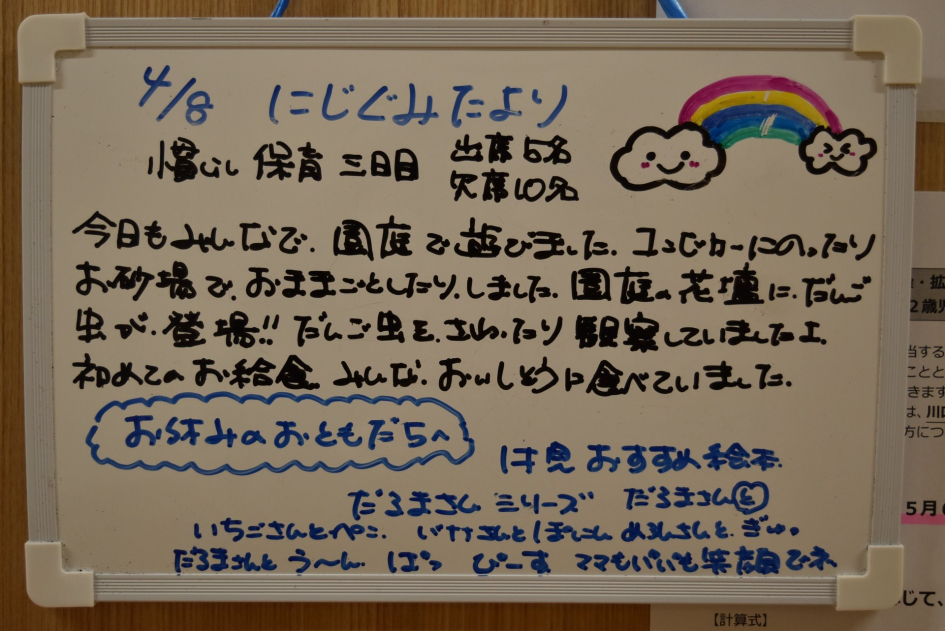 4/8 にじぐみたより
慣らし保育 三日目
出席5名
欠席10名
今日もみんなで、園庭で遊びました。コンビカーにのったり
お砂場で、おままごとしたり、しました。園庭の花壇に、だんご
虫が、登場!! だんご虫を、さわったり観察していましたよ。
初めてのお給食。みんな、おいしそうに食べていました。
お休みのおともだちへ
おすすめ絵本
だるまさんシリーズ だるまさんと
いちごさんとぺこ、バナナさんとぽにん めろんさんと、ぎゅっ
だるまさんと う〜ん ぱっ ぴーす ママもパパも笑顔でネ
2歳
当する
ことと
きます
は、川口
方につ
5月
じて、
【計算式】